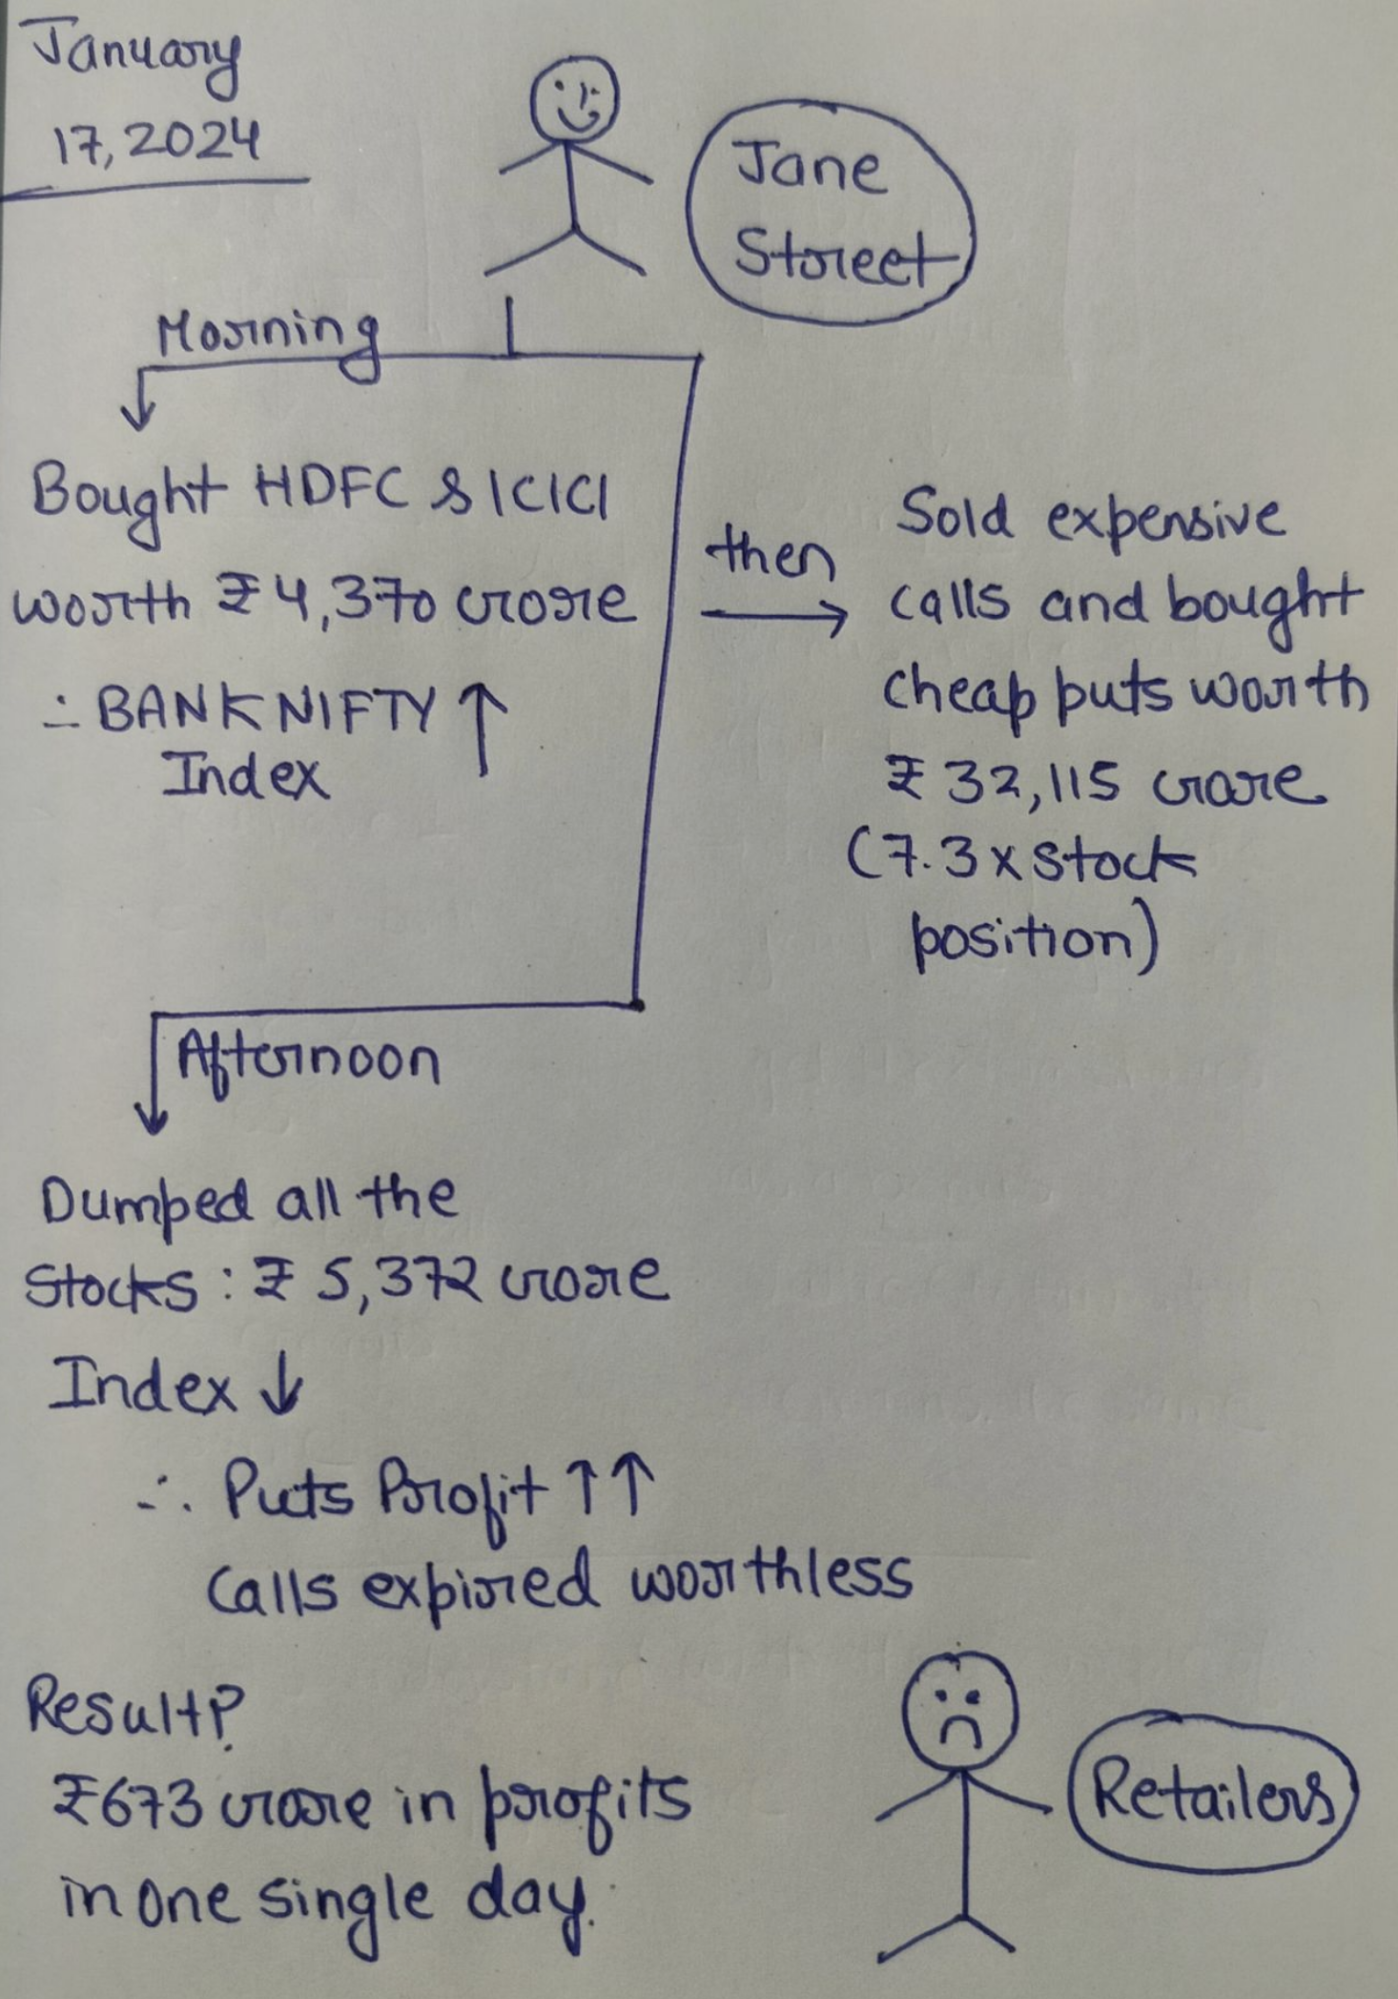 January
17, 2024
Jane
Street
Morning
Bought HDFC & ICICI
worth ₹4,370 crore
∴ BANKNIFTY ↑
Index
then
→
Sold expensive
calls and bought
cheap puts worth
₹32,115 crore
(7.3 x stock
position)
Afternoon
Dumped all the
Stocks : ₹5,372 crore
Index ↓
∴ Puts Profit ↑↑
Calls expired worthless
Result?
₹673 crore in profits
in one single day.
Retailers